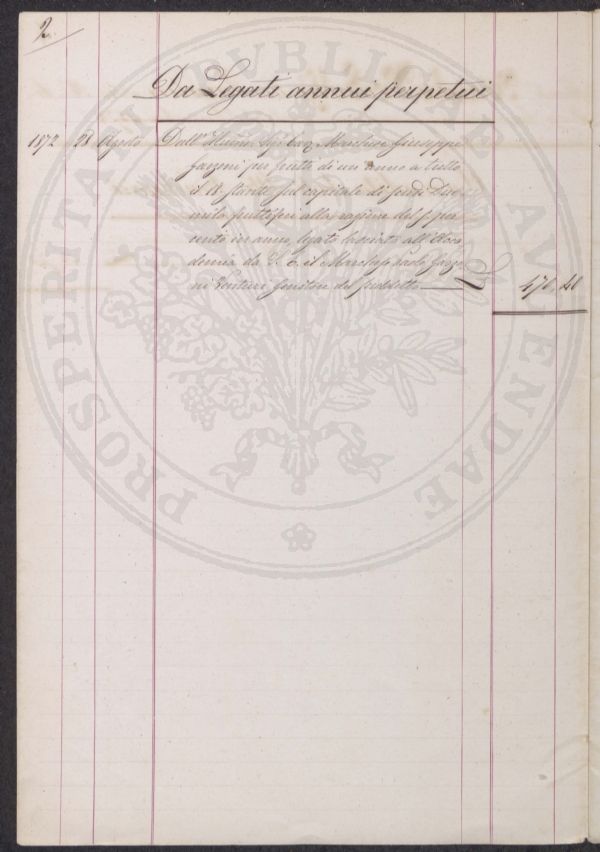 2
Da Legati annui perpetui
1872 28 Agosto Dall' Illmo Sig. Cav. Marchese Giuseppe
Garzoni per frutti di un anno a tutto
il stante sul capitale di scudi Due
mila fruttiferi alla ragione del per
cento in anno, legato lasciato all' Acca
demia da S. E. il Marchese Paolo Garzo
ni Venturi Genitore del suddetto L 470 40
PROSPERITATI PUBLICAE AVGENDAE